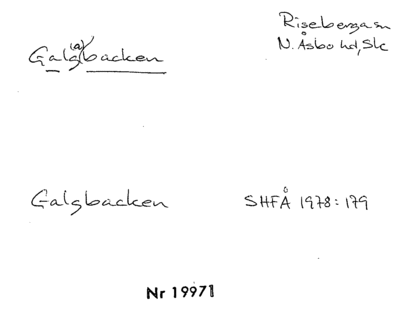 Galg(a)backen
Risebergasn
N. Åsbo hd, Sk
Galgbacken
SHFÅ 1978:179
Nr 19971